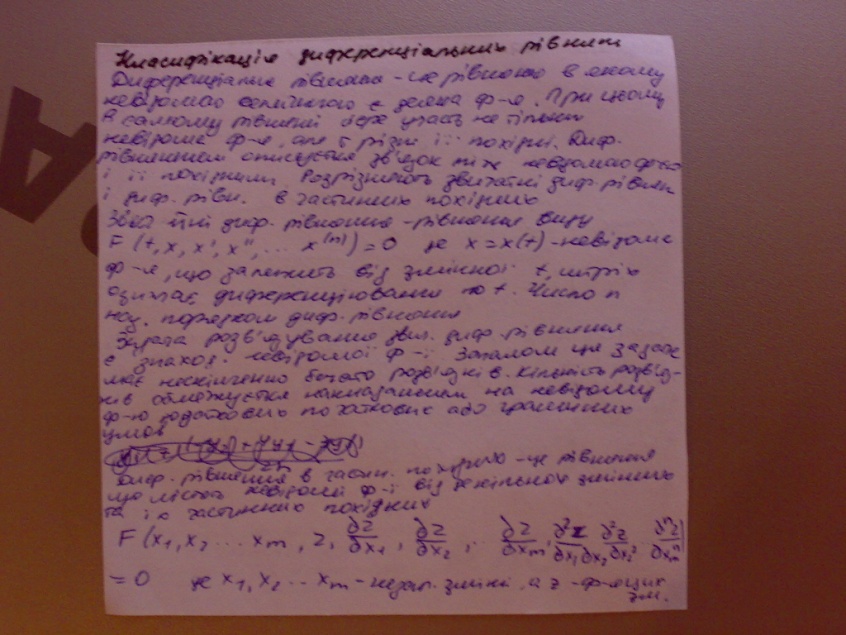 Класифікація диференціальних рівнянь
Диференціальне рівняння - це рівняння в якому
невідомою величиною є деяка ф-я. При цьому
в самому рівнянні бере участь не тільки
невідома ф-я, але і різні її похідні. Диф.
рівнянням описується зв'язок між невідомою ф-єю
і її похідними. Розрізняють звичайні диф. рівнян
і диф. рівн. в частинних похідних
Звичайні диф. рівняння - рівняння виду
F (t, x, x', x'', ... x^(n)) = 0 де x = x(t) - невідома
ф-я, що залежить від змінної t, штрих
означає диференціювання по t. Число n
наз. порядком диф. рівняння
Задача розв'язування звич. диф. рівняння
є знаход. невідомої ф-ї. Загалом ця задача
має нескінченно багато розв'язків. Кількість розв'яз-
ків обмежується накладанням на невідому
ф-ю додаткових початкових або граничних
умов
Диф. рівняння в частин. похідних - це рівняння
що містять невідомі ф-ї від декількох змінних
та їх частинних похідних
F (x₁, x₂ ... xₘ, z, ∂z/∂x₁, ∂z/∂x₂, ... ∂z/∂xₘ, ∂²z/∂x₁∂x₂ ∂²z/∂x₂² ∂ⁿz/∂xₘⁿ)
= 0 де x₁, x₂ ... xₘ - незал. змінні, а z - ф-я цих
зм.